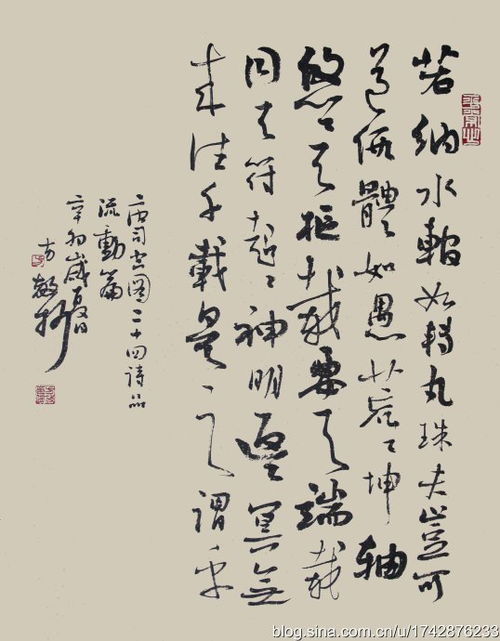 若納水輨如轉丸珠夫豈可
道假體如愚荒々坤軸
悠々天樞載要其端載
同其符超々神明返々冥無
来往千載是之謂乎
唐司空图二十四詩品
流動篇
辛卯歲夏日
blog.sina.com.cn/u/1742876233